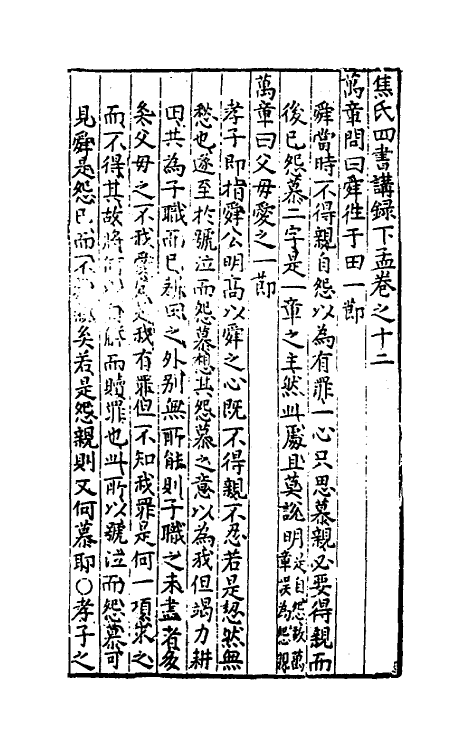 焦氏四書講録下孟卷之十二
萬章問曰舜徃于田一節
舜當時不得親自怨以為有罪一心只思慕親必要得親而
後已怨慕二字是一章之主然此處且莫說明是自怨故萬章誤為怨親
萬章曰父母愛之一節
孝子即指舜公明高以舜之心既不得親不忍若是恝然無
愁也遂至於號泣而怨慕想其怨慕之意以為我但竭力耕
田共為子職而已耕田之外别無所能則子職之未盡者多
矣父母之不我愛 我有罪但不知我罪是何一項求之
而不得其故將何 而贖罪也此所以號泣而怨慕可
見舜是怨已而不 矣若是怨親則又何慕耶○孝子之